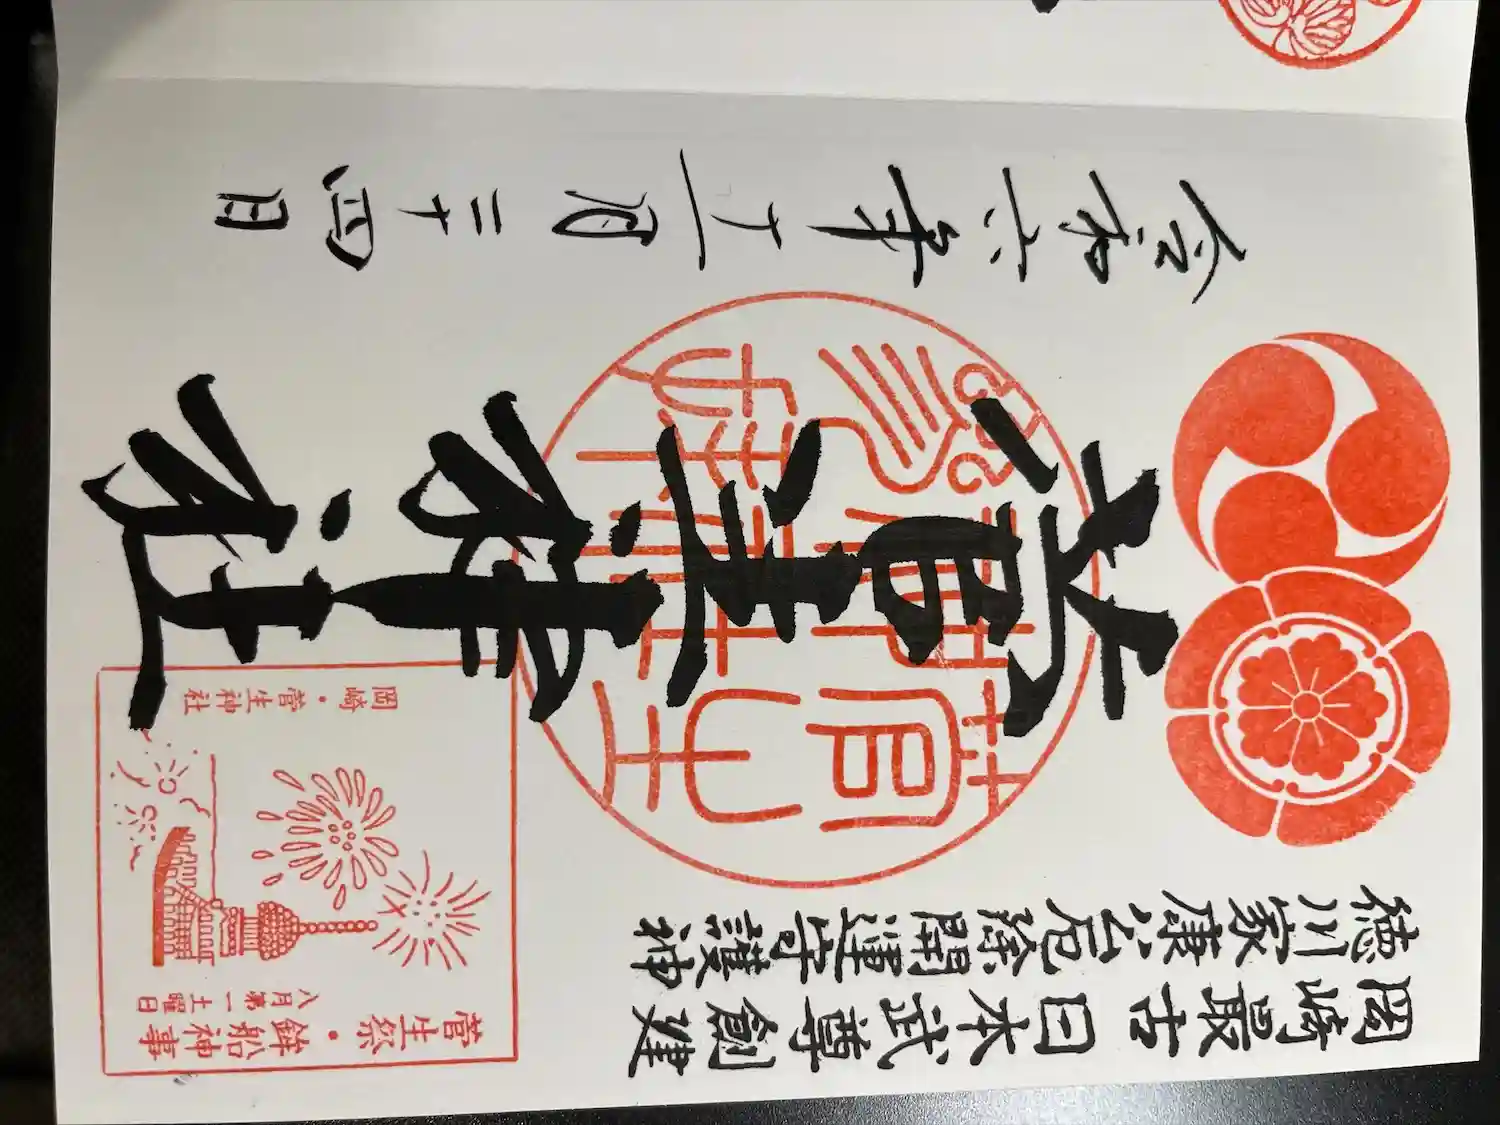 岡崎最古 日本武尊創建
徳川家康公厄除開運守護神
菅生神社
令和六年十一月二十四日
菅生祭・鉾船神事
八月第一土曜日
岡崎・菅生神社